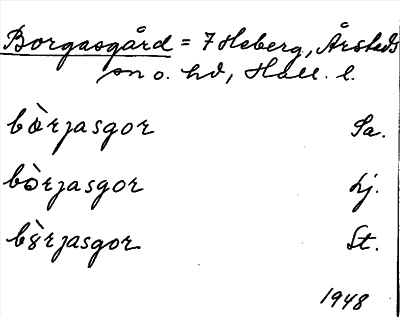 Borgasgård = 7 Heberg, Årstads
sn o. hd, Hall. l.
bòrjasgor Sa.
bòrjasgor Lj.
bòrjasgor St.
1948